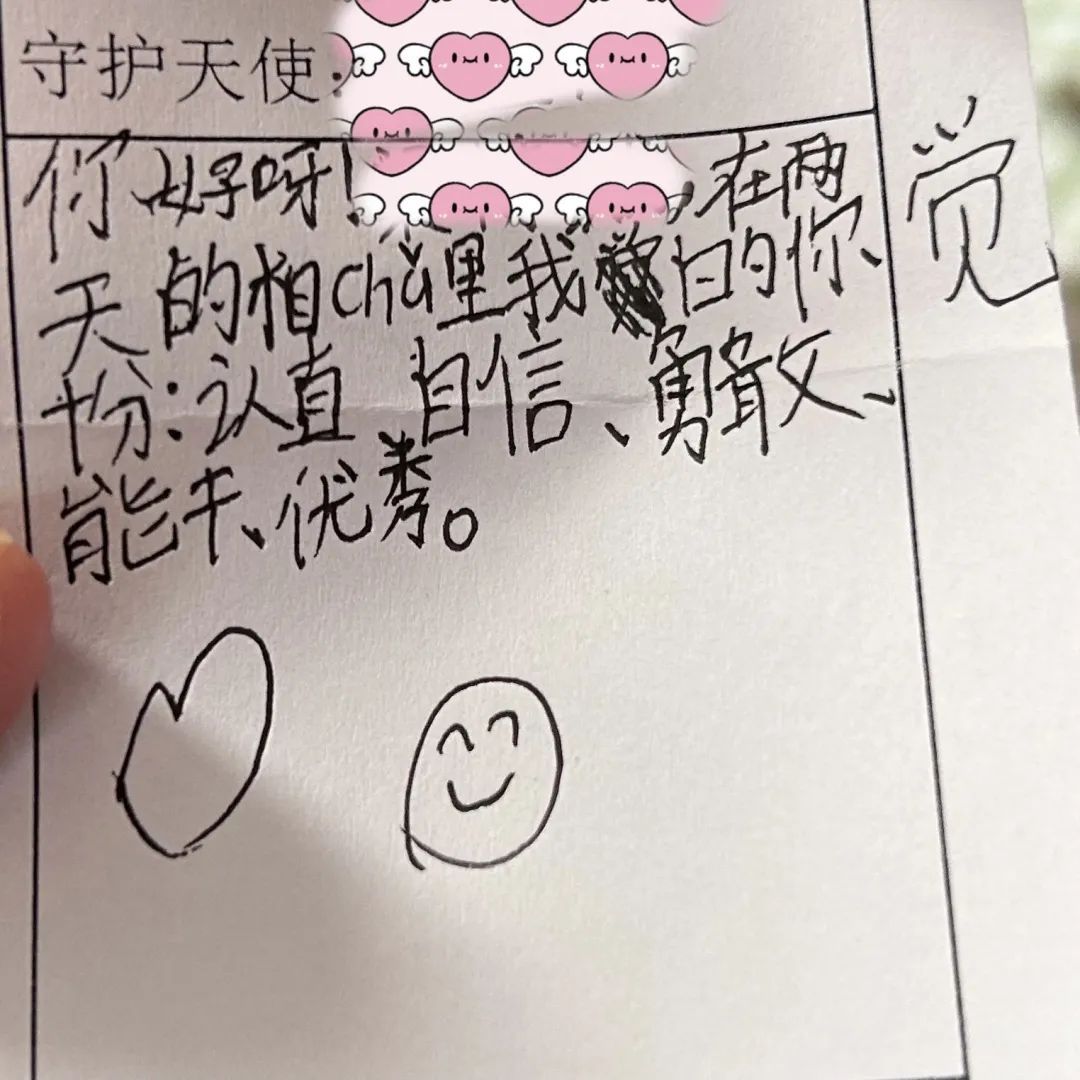 守护天使:
你好呀! ,在两
天的相chǔ里我的你
十分:认真、自信、勇敢、
能干、优秀。
觉